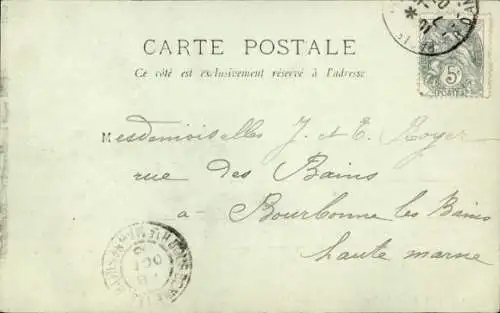 CARTE POSTALE
Ce côté est exclusivement réservé à l'adresse
5c
POSTES
Mesdemoiselles J. et E. Royer
rue des Bains
a Bourbonne les Bains
haute marne